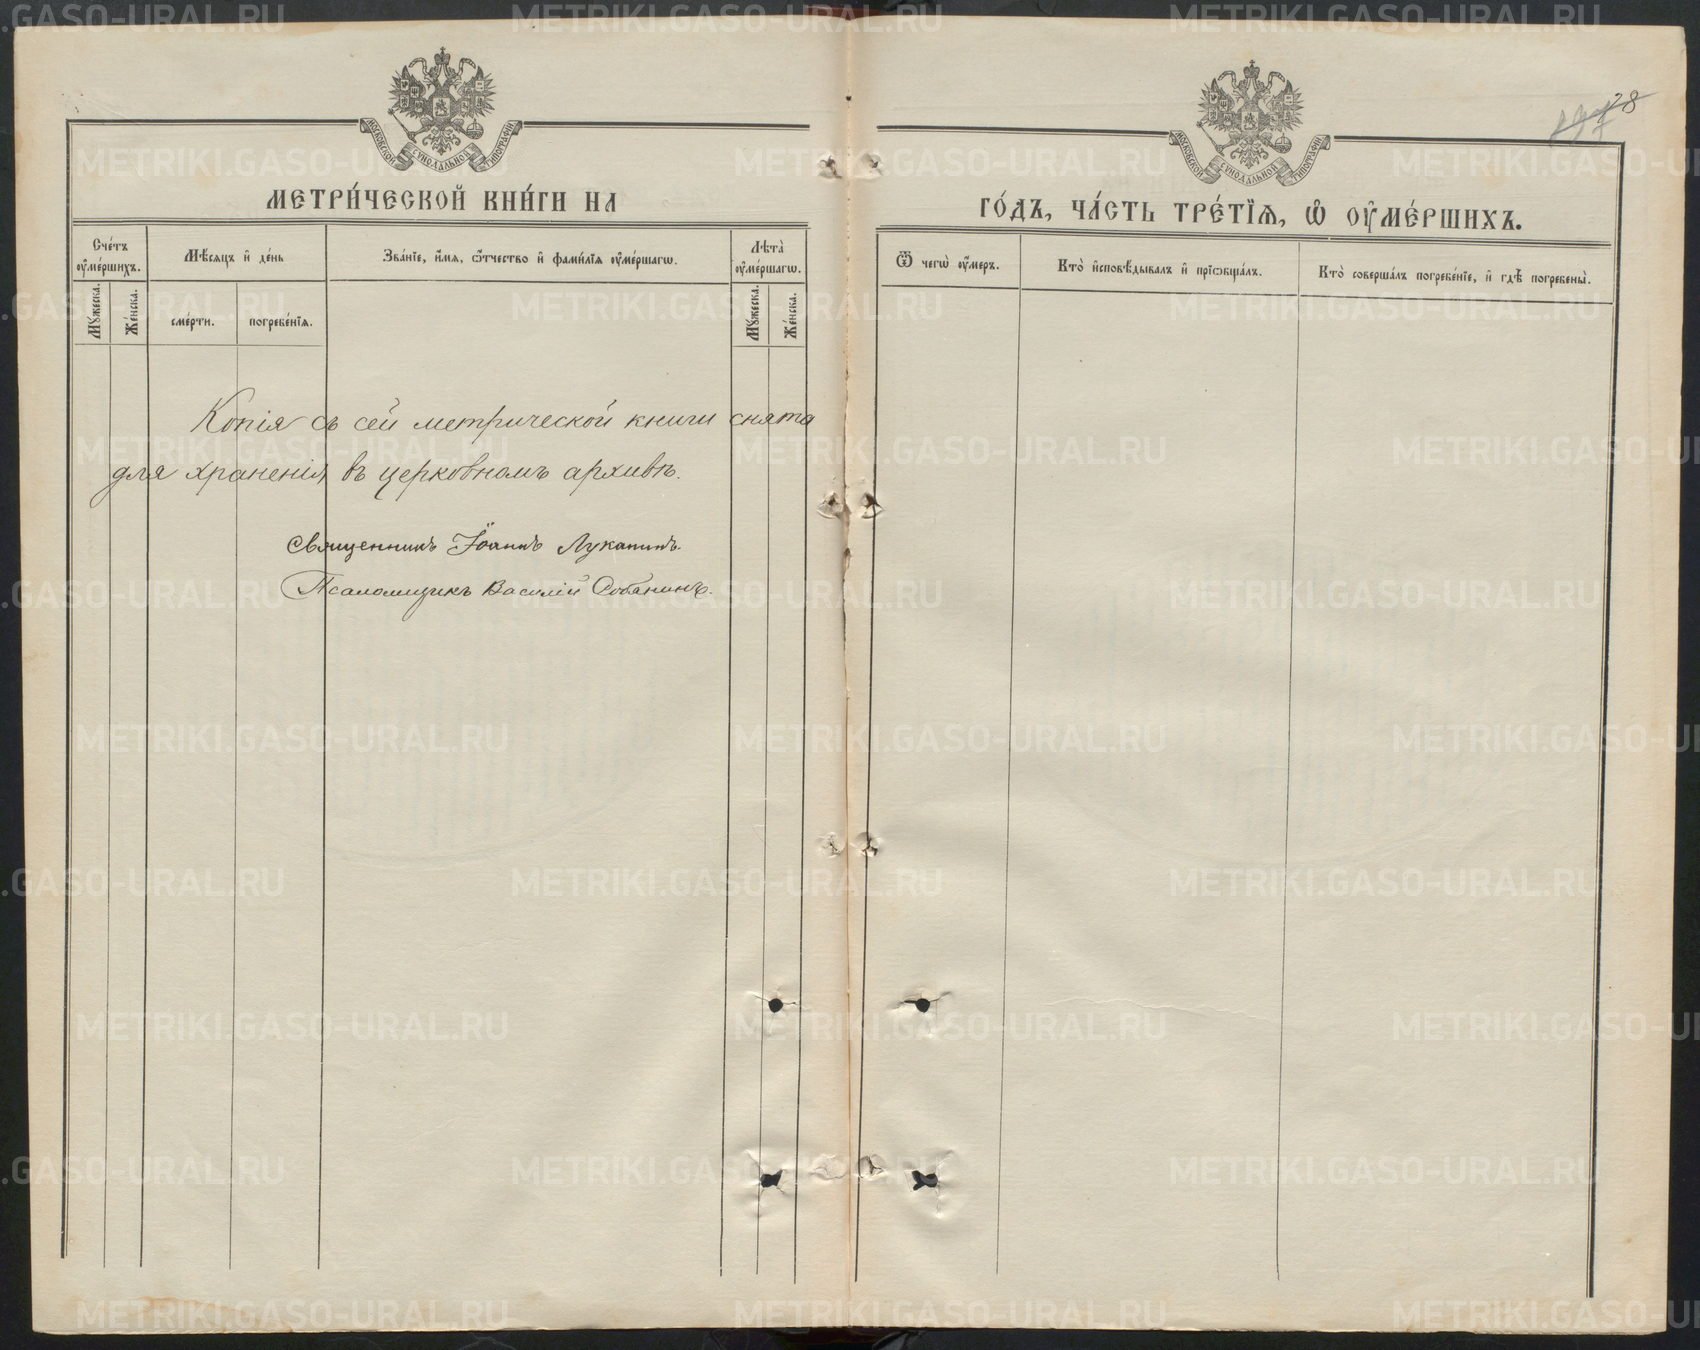 МОСКОВСКОЙ СѴНОДАЛЬНОЙ ТИПОГРАФІИ
МЕТРИ́ЧЕСКОЙ КНИ́ГИ НА
Сче́тъ ᲂу҆ме́ршихъ.
Мꙋ́жеска.
Же́нска.
Мѣ́сяцъ и҆ де́нь
сме́рти.
погребе́нїѧ.
Зва́нїе, и҆́мѧ, ѻ҆́тчество и҆ фами́лїѧ ᲂу҆ме́ршагѡ.
Лѣта̀ ᲂу҆ме́ршагѡ.
Мꙋ́жеска.
Же́нска.
Копія съ сей метрической книги снята
для храненія въ церковномъ архивѣ.
Священникъ Іоаннъ Луканинъ.
Псаломщикъ Василій
28
197
МОСКОВСКОЙ СѴНОДАЛЬНОЙ ТИПОГРАФІИ
ГО́ДЪ, ЧА́СТЬ ТРЕ́ТЇѦ, Ѡ҆ ОУ҆МЕ́РШИХЪ.
Ѿ чегѡ̀ ᲂу҆́меръ.
Кто̀ и҆сповѣ́дывалъ и҆ прїѡбща́лъ.
Кто̀ соверша́лъ погребе́нїе, и҆ гдѣ̀ погребены̀.
METRIKI.GASO-URAL.RU